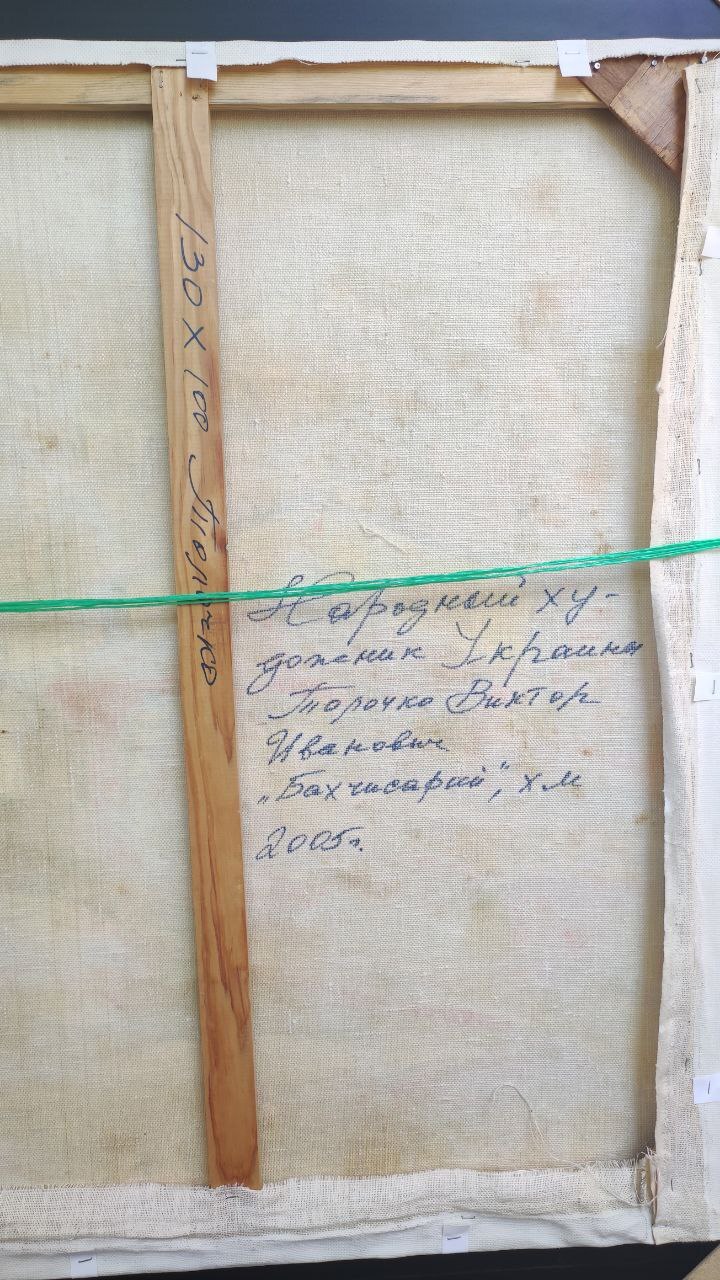 130 х 100
Народный ху-
дожник Украины
Торочко Виктор
Иванович
„Бахчисарай", х м
2005г.